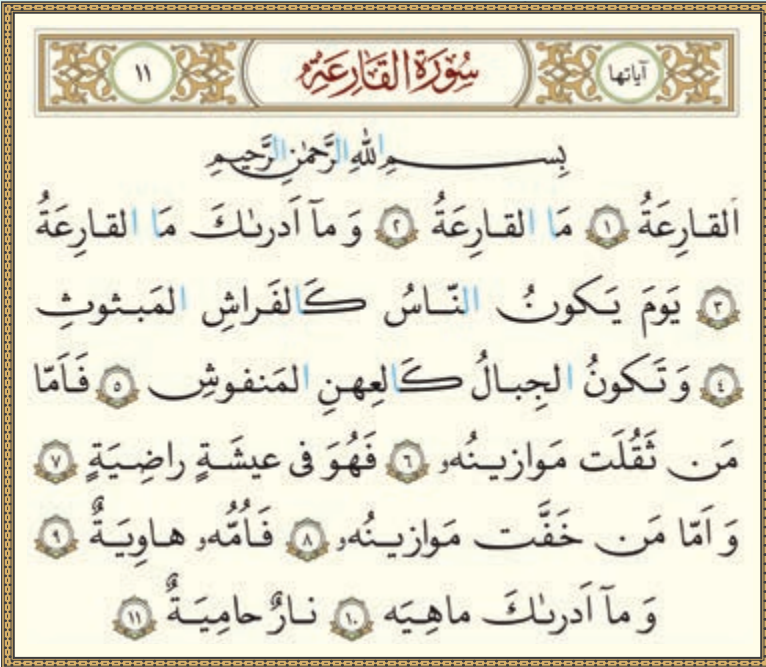 آیاتها سُورَةُ القَارِعَةِ ١١
بِسـمِ اللّٰهِ الرَّحمٰنِ الرَّحیمِ
اَلقـارِعَةُ ١ مَا القـارِعَةُ ٢ وَ مآ اَدرىٰكَ مَا القـارِعَةُ
٣ یَومَ یَـکونُ النّـاسُ کَـالفَـراشِ المَبـثوثِ
٤ وَ تَـکونُ الجِبـالُ کَـالعِهـنِ المَنفوشِ ٥ فَـاَمّا
مَن ثَقُلَت مَوازیـنُهو ٦ فَهُوَ فی عیشَـةٍ راضِـیَةٍ ٧
وَ اَمّا مَن خَفَّت مَوازیـنُهو ٨ فَـاُمُّهو هـاوِیَةٌ ٩
وَ مآ اَدرىٰكَ ماهِـیَه ١٠ نـارٌ حامِیَـةٌ ١١